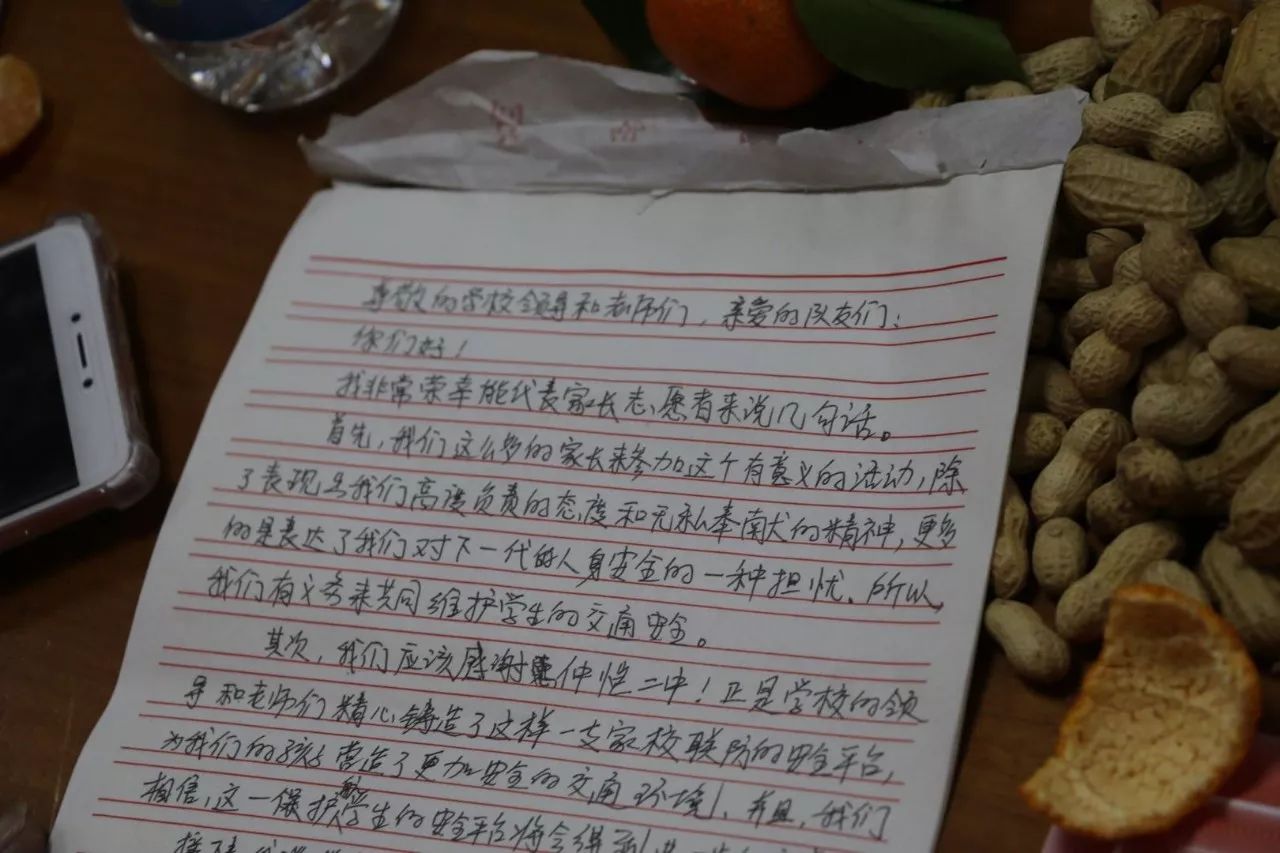 尊敬的学校领导和老师们，亲爱的队友们：
你们好！
我非常荣幸能代表家长志愿者来说几句话。
首先，我们这么多的家长来参加这个有意义的活动，除
了表现出我们高度负责的态度和无私奉献的精神，更多
的是表达了我们对下一代的人身安全的一种担忧、所以，
我们有义务来共同维护学生的交通安全。
其次，我们应该感谢仲恺二中！正是学校的领
导和老师们精心铸造了这样一支家校联防的安全平台，
为我们的孩子营造了更加安全的交通环境！并且，我们
相信，这一保护学生的安全平台将会得到